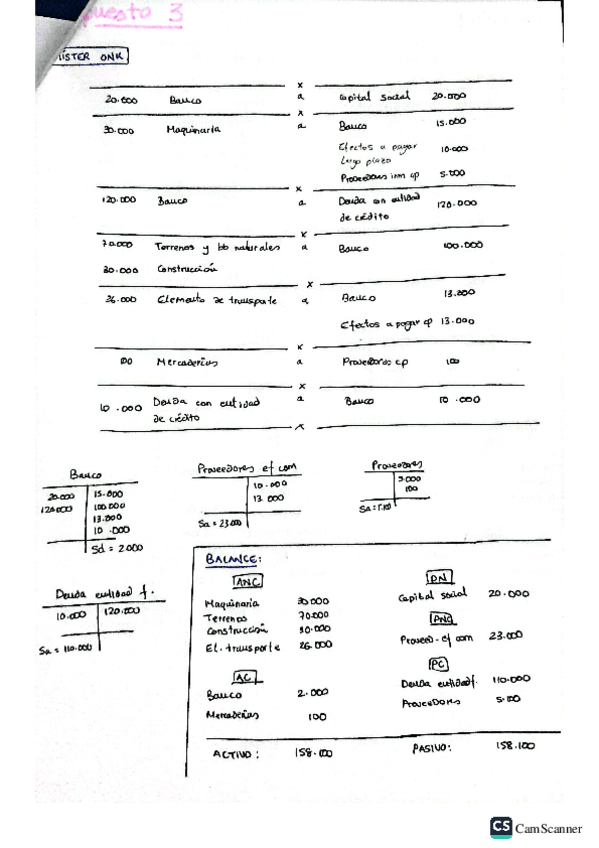 puesto 3
MÍSTER ONK
20.000 Banco a Capital Social 20.000
30.000 Maquinaria a Banco 15.000
Efectos a pagar 10.000
Largo plazo
Proveedores inm cp 5.000
120.000 Banco a Deuda con entidad 120.000
de crédito
70.000 Terrenos y bb naturales a Banco 100.000
30.000 Construcción
26.000 Elemento de transporte a Banco 13.000
Efectos a pagar cp 13.000
100 Mercaderías a Proveedores cp 100
10.000 Deuda con entidad a Banco 10.000
de crédito
Banco
20.000 15.000
120.000 100.000
13.000
10.000
Sd = 2.000
Proveedores ef com
10.000
13.000
Sa = 23.000
Proveedores
5.000
100
Deuda entidad f.
10.000 120.000
Sa = 110.000
BALANCE:
ANC
Maquinaria 30.000
Terrenos 70.000
Construcción 30.000
El. transporte 26.000
AC
Banco 2.000
Mercaderías 100
ACTIVO: 158.100
PN
Capital social 20.000
PNC
Proveed. ef com 23.000
PC
Deuda entidad f. 110.000
Proveedores 5.100
PASIVO: 158.100
CS CamScanner